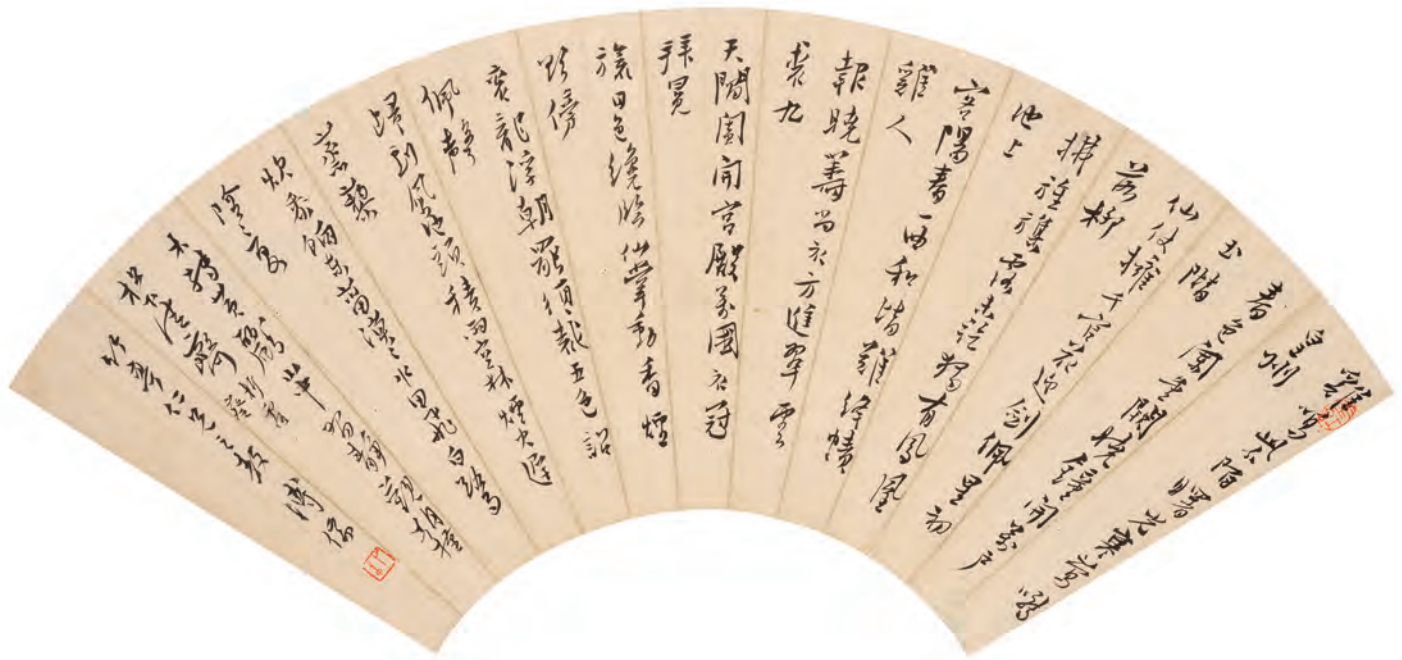 雞鳴紫陌曙光寒鶯囀
皇州
春色闌金闕曉鐘開萬戶
玉階
仙仗擁千官花迎剑佩星初
落柳
拂旌旗露未乾獨有鳳凰
池上
客陽春一曲和皆難絳幘
雞人
報曉籌尚衣方進翠雲
裘九
天閶闔開宮殿萬國衣冠
拜冕
旒日色纔臨仙掌動香煙
欲傍
袞龍浮朝罷須裁五色詔
佩聲
歸到鳳池頭積雨空林煙火遲
蒸藜
炊黍餉東菑漠〻水田飛白鷺
陰〻夏
木囀黃鸝山中習靜觀朝槿
松下清齋折露葵
仁兄之教 溥儒